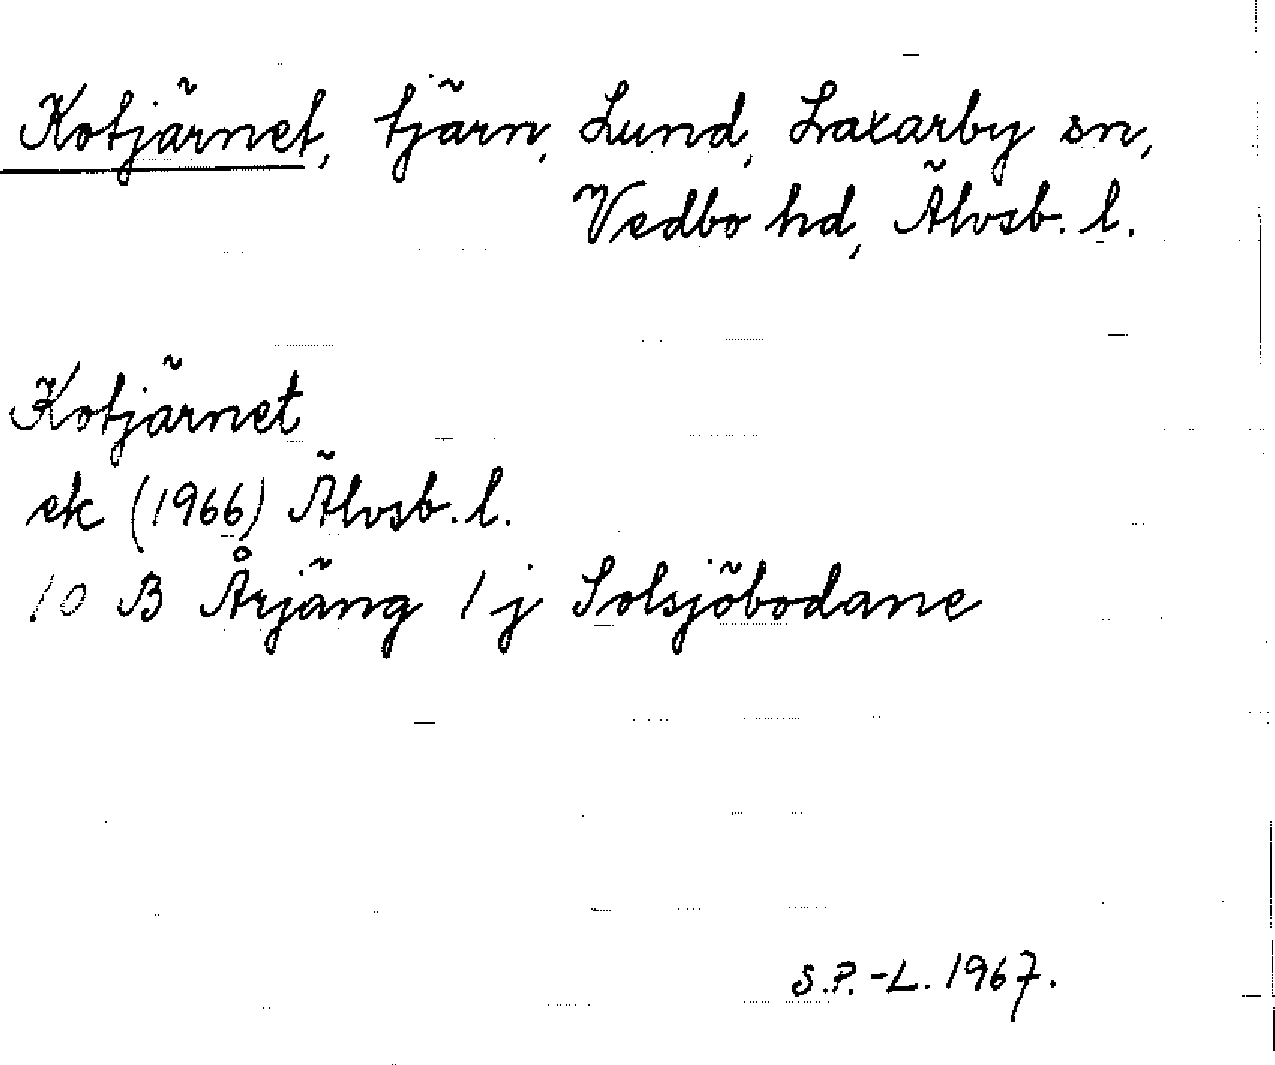 Kotjärnet, tjärn, Lund, Laxarby sn,
Vedbo hd, Älvsb. l.
Kotjärnet
ek (1966) Älvsb. l.
10 B Årjäng 1 j Solsjöbodane
S.P.-L. 1967.